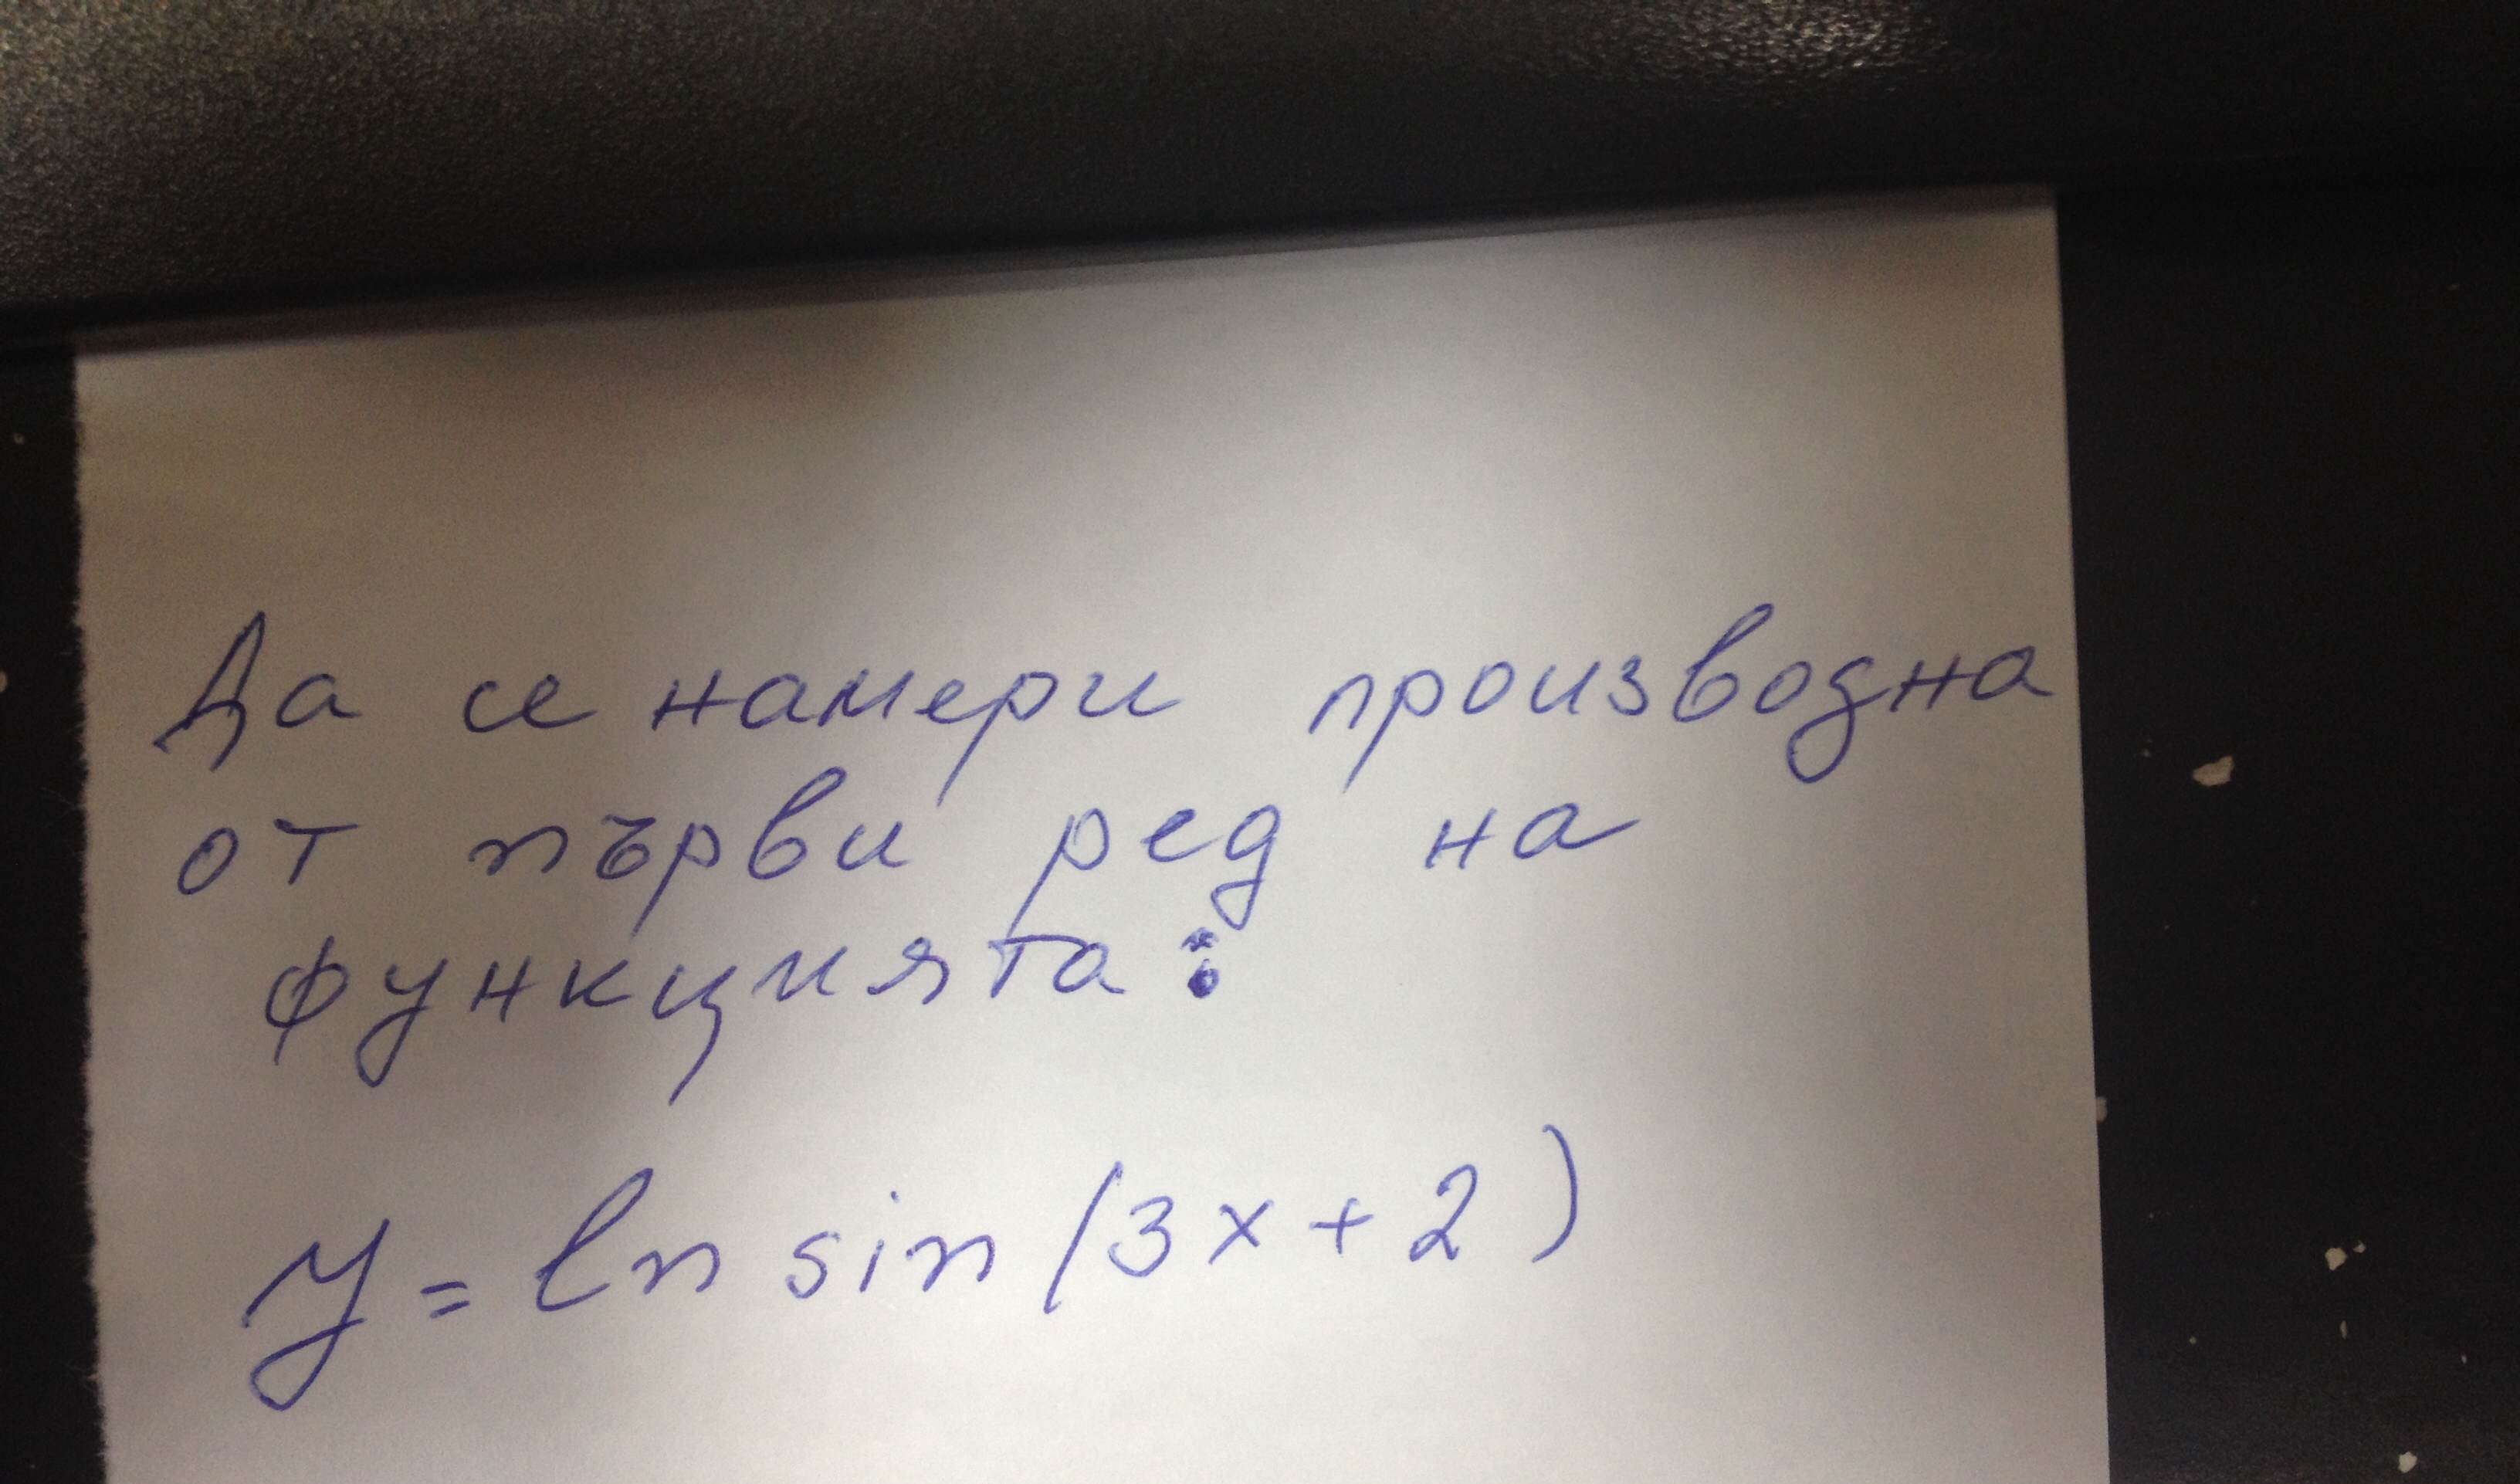 Да се намери производна
от първи ред на
функцията:
y = ln sin (3x+2)